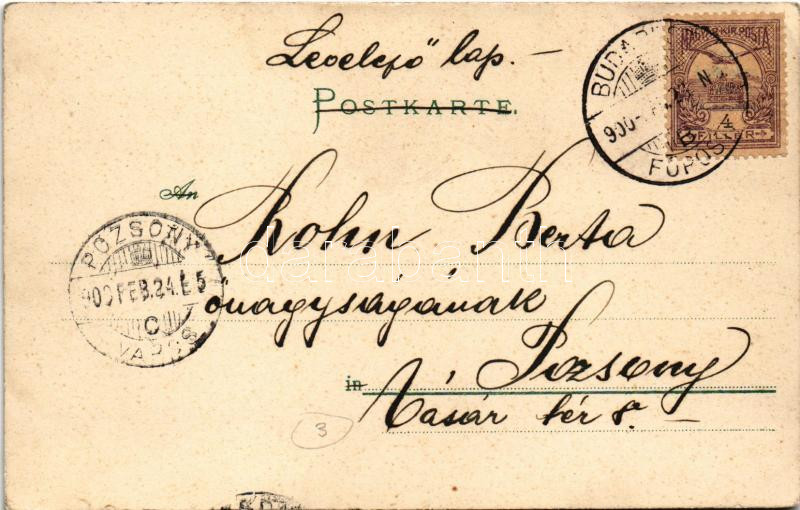 Levelező" lap. –
POSTKARTE.
MAGYAR KIR. POSTA
4
FILLÉR
BUDAPEST
900
B
FŐPOSTA
An
Kohn Berta
őnagyságának
in Pozsony
Vásár tér 8. –
POZSONY
900 FEB. 24. É 5
C
VÁROS
3
darabanth